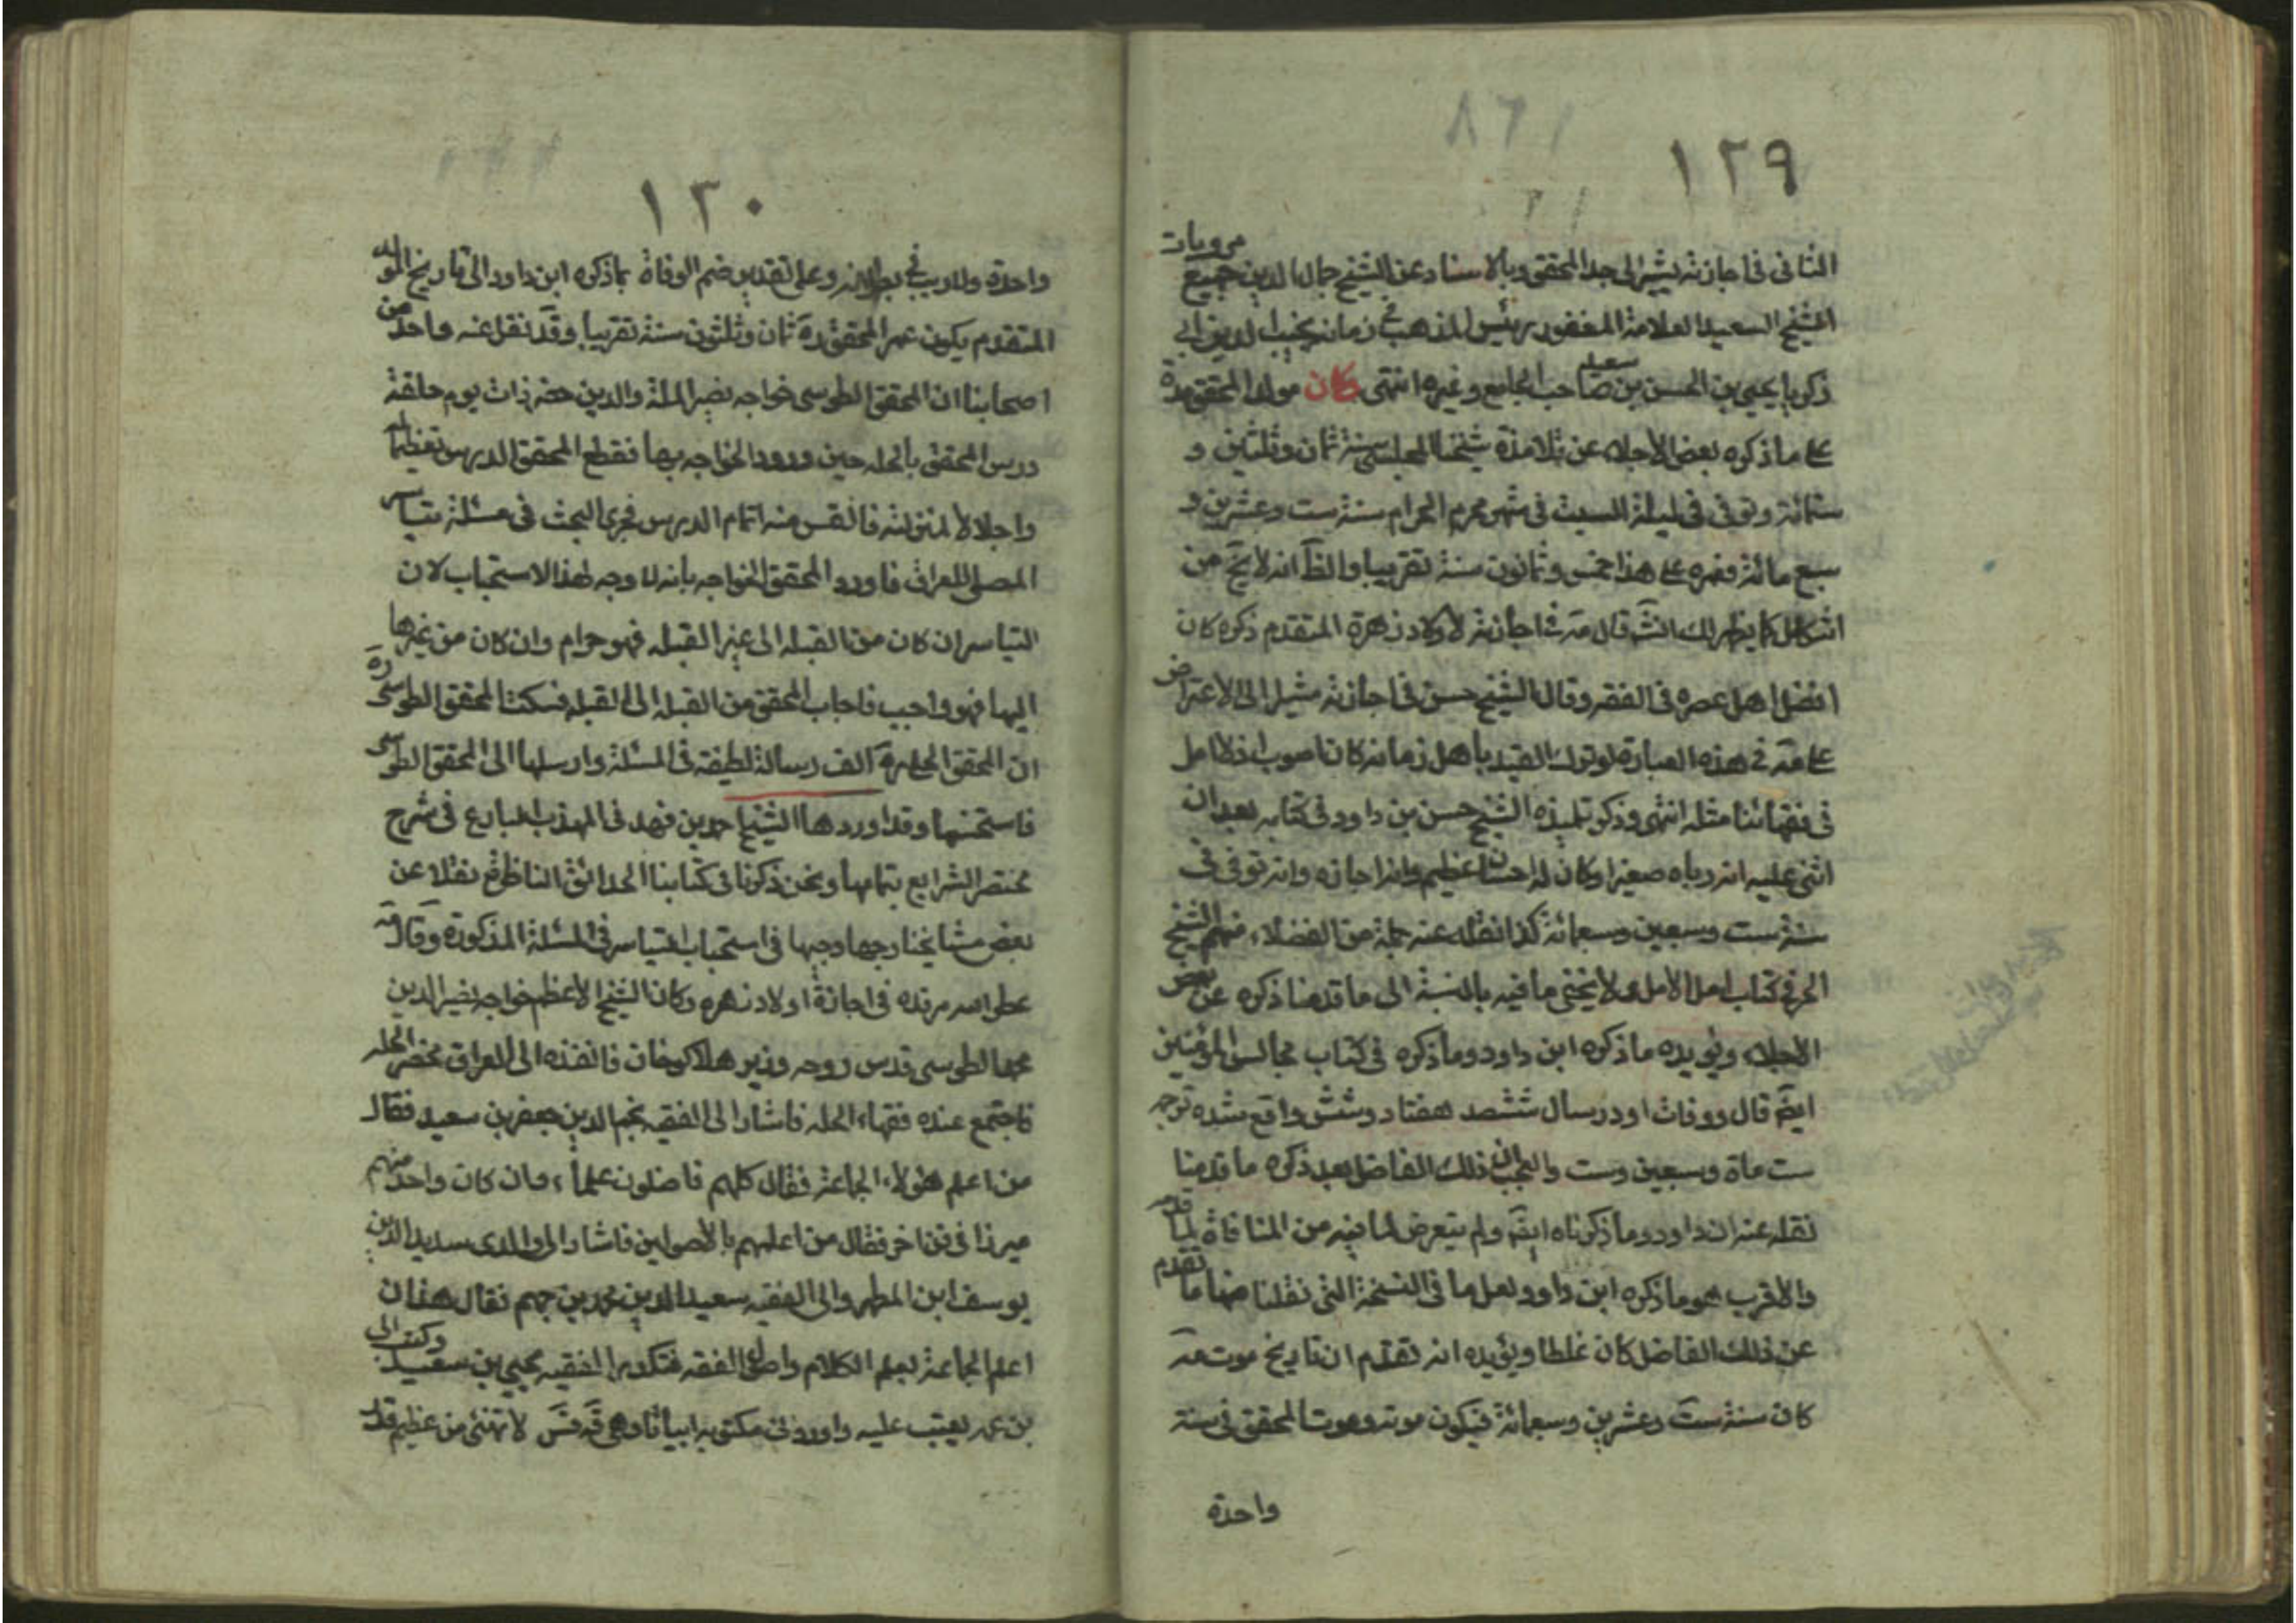 ١٢٩
الثانى فى اجازته يشير الى جد المحقق وبالاسناد عن الشيخ جمال الدين جميع مرويات
الشيخ السعيد العلامة المغفور رئيس المذهب فى زمانه نجيب الدين ابى
زكريا يحيى بن الحسن بن سعيد صاحب الجامع وغيره انتهى وكان مولد المحقق ره
على ما ذكره بعض الاجلاء عن تلامذة شيخنا المجلسى سنة ثمان وثلثين و
ستمائة وتوفى فى ليلة السبت فى شهر محرم الحرام سنة ست وعشرين و
سبع مائة فعمره على هذا خمس وثمانون سنة تقريبا والظ انه لا يخ من
اشكال كما يظهر لك انش قال مه فى اجازته لاولاد زهرة المتقدم ذكره كان
افضل اهل عصره فى الفقه وقال الشيخ حسن فى اجازته مشيرا الى الاعتراض
على مه فى هذه العبارة لو ترك القيد باهل زمانه كان اصوب اذ لا مثل
فى فقهائنا مثله انتهى وذكر تلميذه الشيخ حسن بن داود فى كتابه بعد ان
اثنى عليه انه رباه صغيرا وكان له احسان عظيم وانه اجازه وانه توفى فى
سنة ست وسبعين وسبعمائة كذا نقله عنه جملة من الفضلاء منهم الشيخ
الحر فى كتاب امل الامل ولا يخفى ما فيه بالنسبة الى ما قدمنا ذكره عن بعض
الاجلاء ويؤيده ما ذكره ابن داود وما ذكره فى كتاب مجالس المؤمنين
ايض قال ووفات او در سال ششصد هفتاد وشش واقع شده توجه
ست ماة وسبعين وست والعجب ان ذلك الفاضل بعد ذكره ما قدمنا
نقله عنه ان داود وما ذكرناه ايض ولم يتعرض لما فيه من المنافاة لما قدمه
والاقرب هو ما ذكره ابن داود ولعل ما فى النسخة التى نقلنا منها ما تقدم
عن ذلك الفاضل كان غلطا ويؤيده انه تقدم ان تاريخ موت مه
كان سنة ست وعشرين وسبعمائة فيكون موته وموت المحقق فى سنة
واحدة
١٣٠
واحدة ولا ريب فى بطلانه وعلى تقدير ضم الوفاة بما ذكره ابن داود الى تاريخ المولد
المتقدم يكون عمر المحقق ره ثمان وثلثون سنة تقريبا وقد نقل عنه واحد من
اصحابنا ان المحقق الطوسى خواجه نصير الملة والدين حضر ذات يوم حلقة
درس المحقق بالحله حين ورود الخواجه بها فقطع المحقق الدرس تعظيما له
واجلالا لمنزلته فالتمس منه اتمام الدرس فجرى البحث فى مسئلة تياسر
المصلى للعراق فاورد المحقق الخواجه بانه لا وجه لهذا الاستحباب لان
التياسر ان كان من القبله الى غير القبله فهو حرام وان كان من غيرها
اليها فهو واجب فاجاب المحقق من القبله الى القبله فسكت المحقق الطوسى ره
ان المحقق الحلى ره الف رسالة لطيفة فى المسئلة وارسلها الى المحقق الطوسى
فاستحسنها وقد اوردها الشيخ احمد بن فهد فى المهذب البارع فى شرح
مختصر الشرايع بتمامها ونحن ذكرنا فى كتابنا الحدائق الناظرة نقلا عن
بعض مشايخنا وجها وجيها فى استحباب التياسر فى المسئلة المذكورة وقال مه
عطر الله مرقده فى اجازة اولاد زهره وكان الشيخ الاعظم خواجه نصير الدين
محمد الطوسى قدس روحه وزير هلاكوخان فانفذه الى العراق فحضر الحله
فاجتمع عنده فقهاء الحله فاشار الى الفقيه نجم الدين جعفر بن سعيد فقال
من اعلم هؤلاء الجماعة فقال كلهم فاضلون علماء وان كان واحد منهم
مبرزا فى فن اخر فقال من اعلمهم بالاصولين فاشار الى والدى سديد الدين
يوسف ابن المطهر والى الفقيه سعيد الدين محمد بن جهم فقال هذان
اعلم الجماعة بعلم الكلام واصول الفقه فتكدر الفقيه يحيى بن سعيد وكتب الى
بن عمه يعتب عليه واورد فى مكتوبه ابياتا وهى قه قس لا تهنئ من عظيم قدر